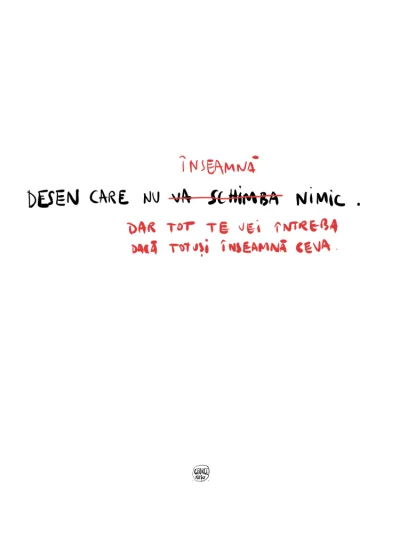 ÎNSEAMNĂ
DESEN CARE NU VA SCHIMBA NIMIC.
DAR TOT TE VEI ÎNTREBA
DACĂ TOTUȘI ÎNSEAMNĂ CEVA.